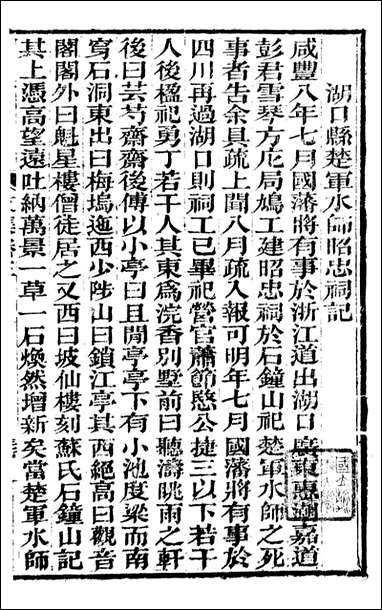 湖口縣楚軍水師昭忠祠記
咸豐八年七月國藩將有事於浙江道出湖口廣東惠潮嘉道
彭君雪琴方庀局鳩工建昭忠祠於石鐘山祀楚軍水師之死
事者告余具疏上聞八月疏入報可明年七月國藩將有事於
四川再過湖口則祠工已畢祀營官蕭節愍公捷三以下若干
人後楹祀勇丁若干人其東為浣香別墅前曰聽濤眺雨之軒
後曰芸芍齋齋後傅以小亭曰且閒亭亭下有小池度梁而南
穿石洞東出曰梅塢迤西少陟山曰鎖江亭其西絕高曰觀音
閣閣外曰魁星樓僧徒居之又西曰坡仙樓刻蘇氏石鐘山記
其上憑高望遠吐納萬景一草一石煥然增新矣當楚軍水師